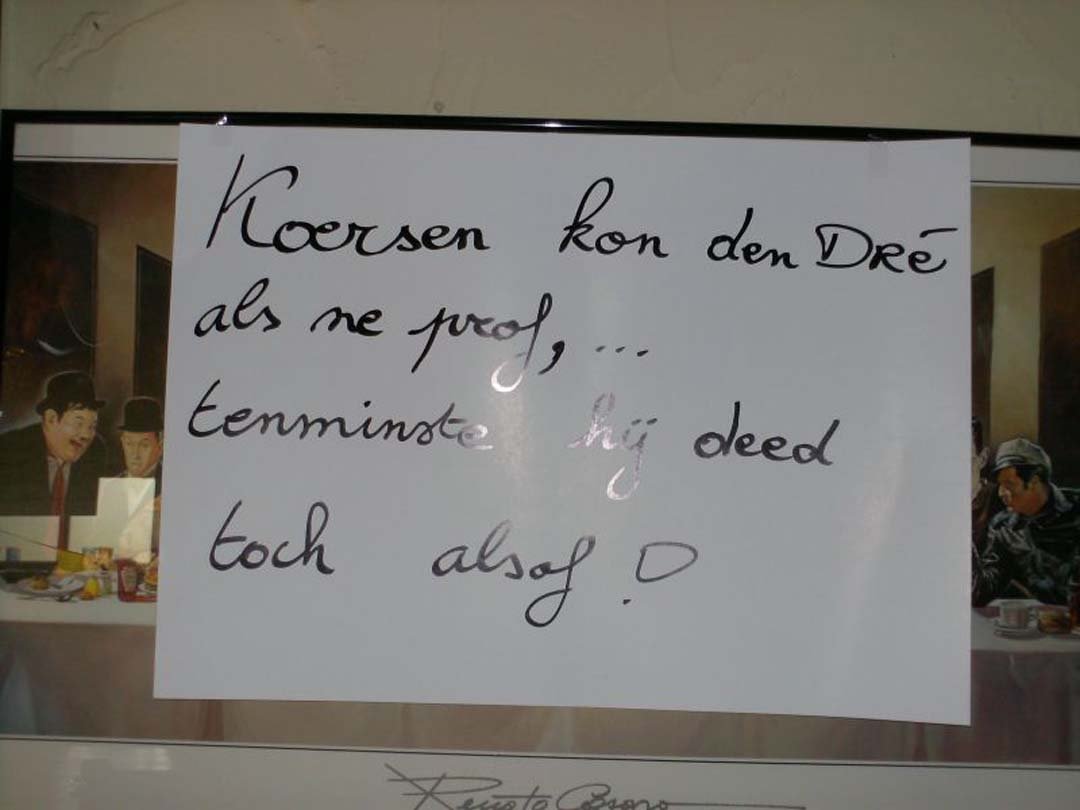 Koersen kon den DRé
als ne prof, ...
tenminste hij deed
toch alsof. D
Renato Casaro